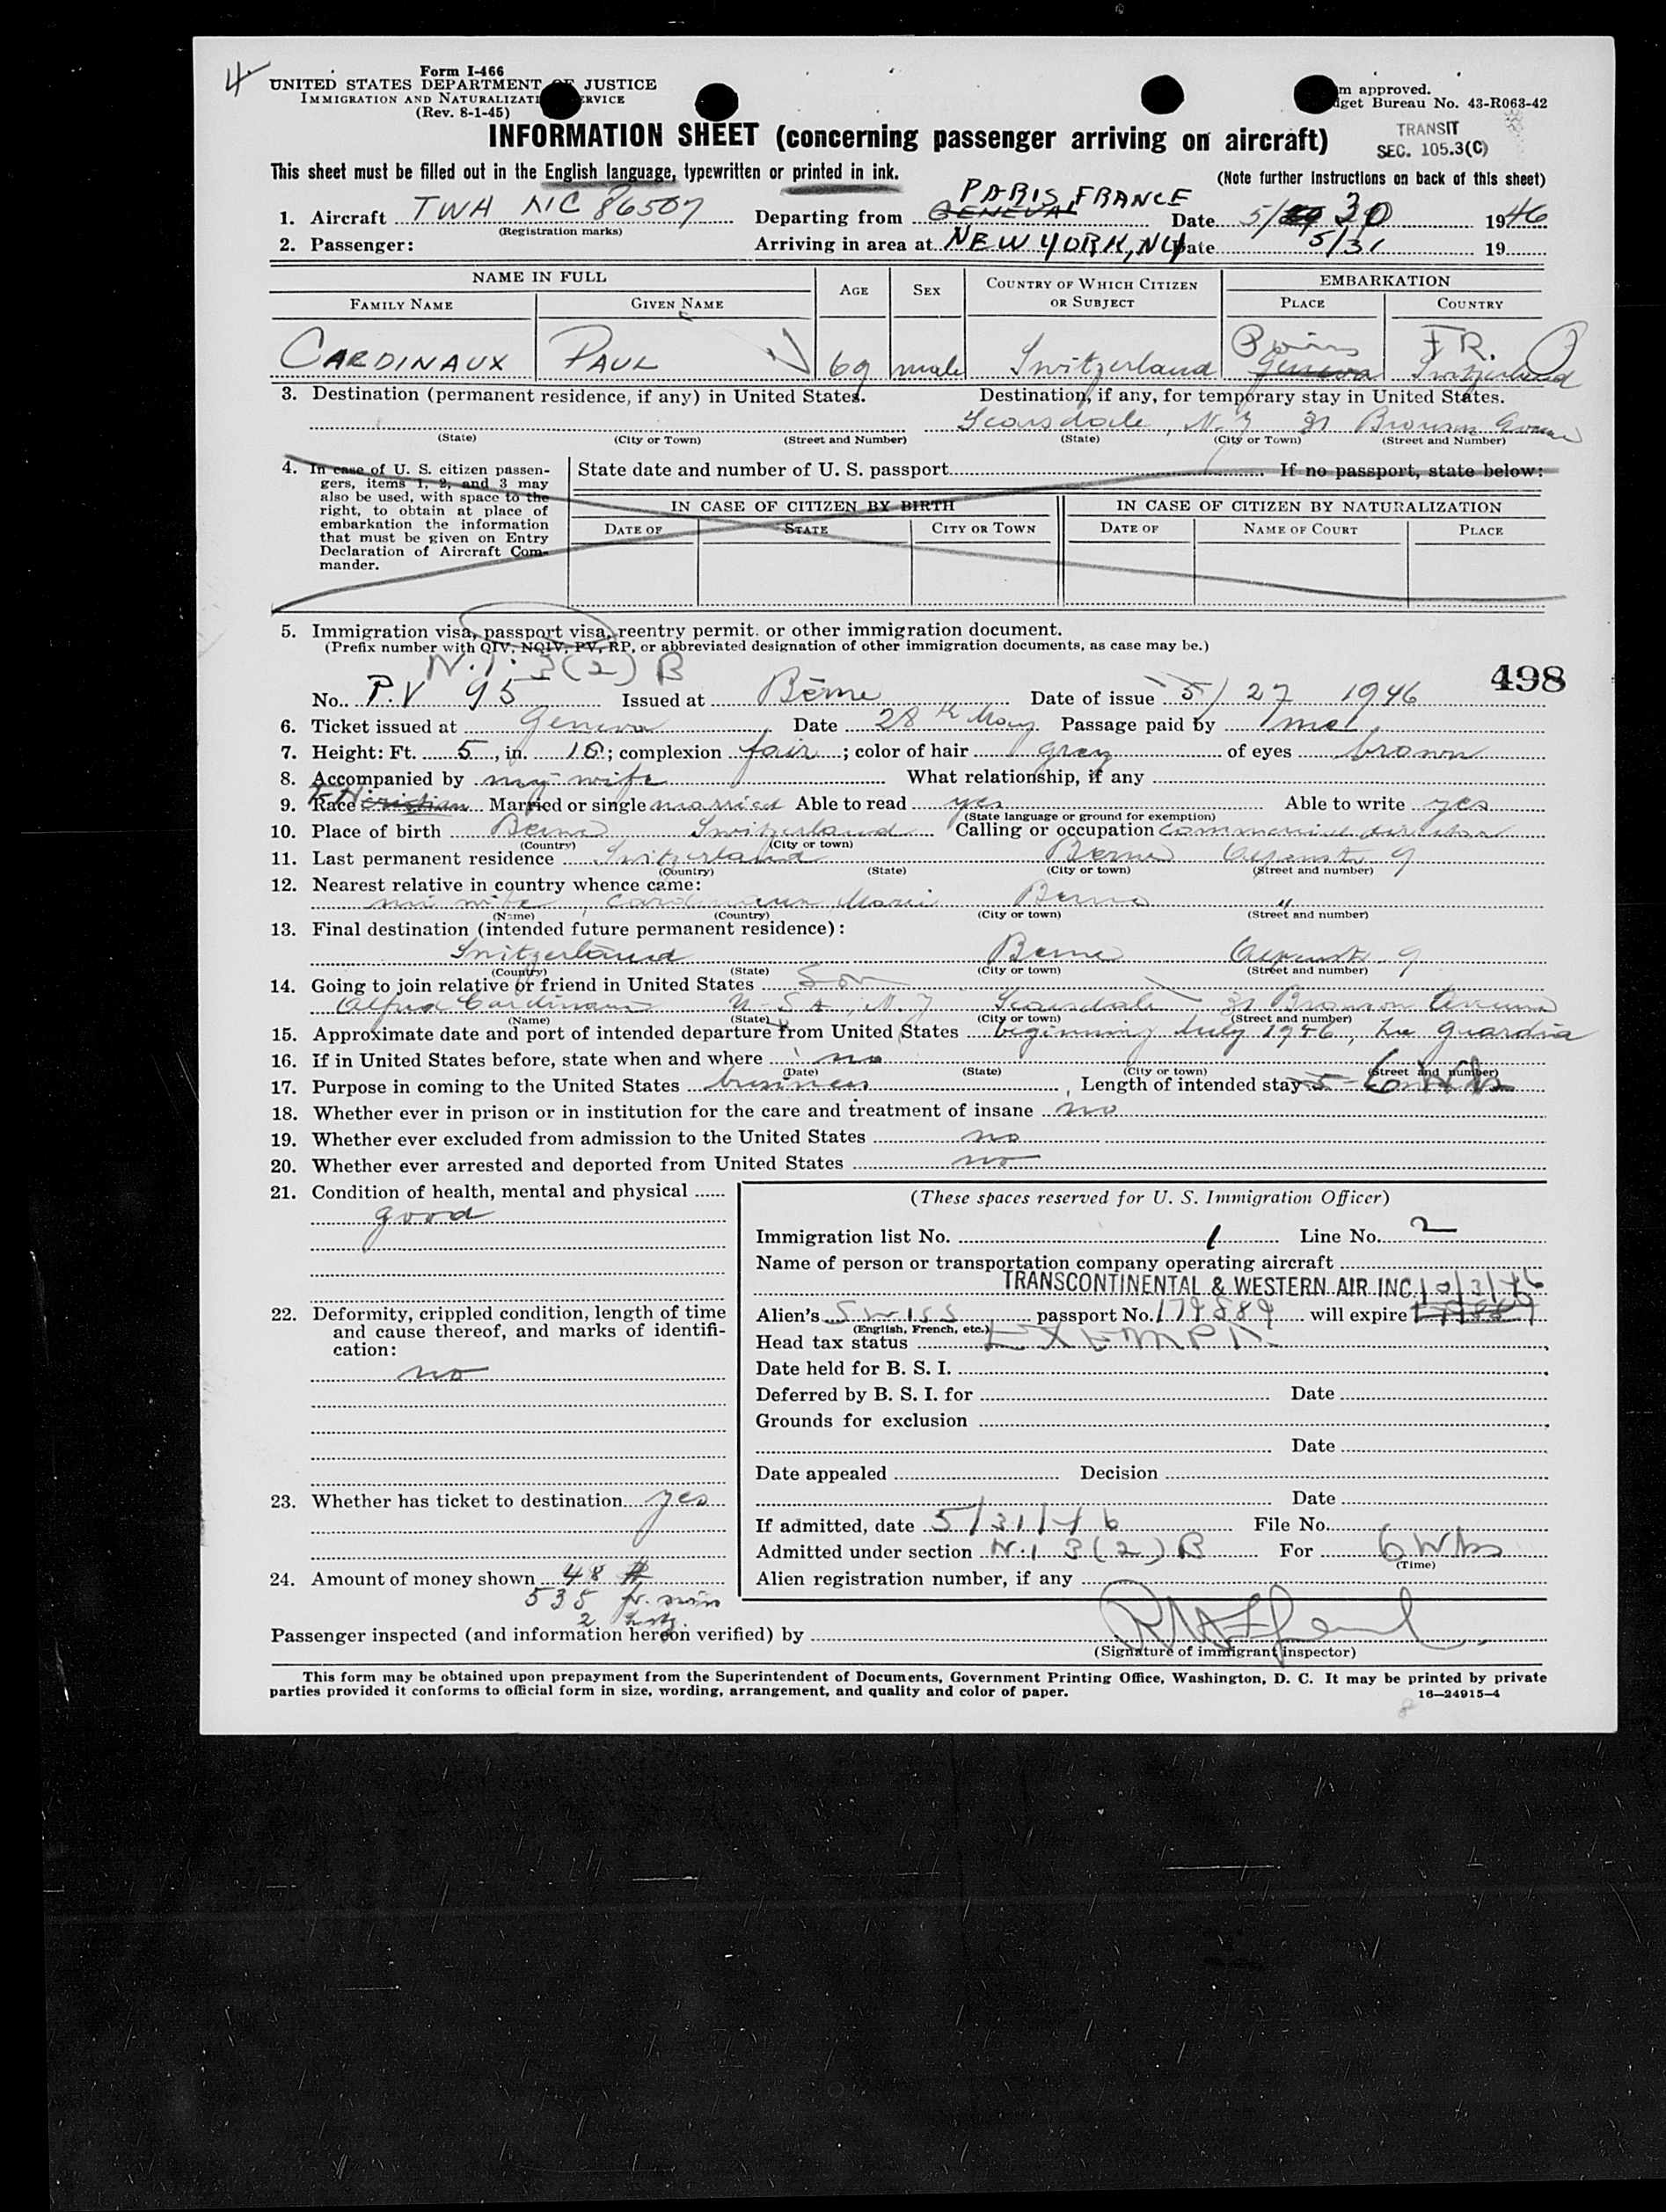 4
Form I-466
UNITED STATES DEPARTMENT OF JUSTICE
IMMIGRATION AND NATURALIZATI RVICE
(Rev. 8-1-45)
m approved.
get Bureau No. 43-R063-42
TRANSIT
SEC. 105.3(C)
INFORMATION SHEET (concerning passenger arriving on aircraft)
This sheet must be filled out in the English language, typewritten or printed in ink.
(Note further instructions on back of this sheet)
PARIS, FRANCE
1. Aircraft TWA NC 86507 Departing from GENEVA Date 5/ 30 1946
(Registration marks)
2. Passenger: Arriving in area at NEW YORK, NY Date 5/31 19
NAME IN FULL AGE SEX COUNTRY OF WHICH CITIZEN OR SUBJECT EMBARKATION
FAMILY NAME GIVEN NAME PLACE COUNTRY
Paris FR.
CARDINAUX PAUL 69 male Switzerland Geneva Switzerland
3. Destination (permanent residence, if any) in United States. Destination, if any, for temporary stay in United States.
Scarsdale, N.Y 31 Avenue
(State) (City or Town) (Street and Number) (State) (City or Town) (Street and Number)
4. In case of U. S. citizen passengers, items 1, 2, and 3 may also be used, with space to the right, to obtain at place of embarkation the information that must be given on Entry Declaration of Aircraft Commander.
State date and number of U. S. passport If no passport, state below:
IN CASE OF CITIZEN BY BIRTH IN CASE OF CITIZEN BY NATURALIZATION
DATE OF STATE CITY OR TOWN DATE OF NAME OF COURT PLACE
5. Immigration visa, passport visa, reentry permit, or other immigration document.
(Prefix number with QIV, NQIV, PV, RP, or abbreviated designation of other immigration documents, as case may be.)
N.I. 3(2) B
498
No. P.V 95 Issued at Berne Date of issue 5/ 27 1946
6. Ticket issued at Geneva Date 28th May Passage paid by me
7. Height: Ft. 5, in. 10; complexion fair; color of hair grey of eyes brown
8. Accompanied by my wife What relationship, if any
9. Race Married or single married Able to read yes Able to write yes
(State language or ground for exemption)
10. Place of birth Berne Switzerland Calling or occupation commercial director
(Country) (City or town)
11. Last permanent residence Switzerland Berne 9
(Country) (State) (City or town) (Street and number)
12. Nearest relative in country whence came:
my wife, Cardinaux Marie Berne "
(Name) (Country) (City or town) (Street and number)
13. Final destination (intended future permanent residence):
Switzerland Berne 9
(Country) (State) (City or town) (Street and number)
14. Going to join relative or friend in United States Son
Alfred Cardinaux U.S.A, N.Y Scarsdale 31 Avenue
(Name) (State) (City or town) (Street and number)
15. Approximate date and port of intended departure from United States beginning July 1946, La Guardia
16. If in United States before, state when and where no
(Date) (State) (City or town) (Street and number)
17. Purpose in coming to the United States business, Length of intended stay 6 wks
18. Whether ever in prison or in institution for the care and treatment of insane no
19. Whether ever excluded from admission to the United States no
20. Whether ever arrested and deported from United States no
21. Condition of health, mental and physical
good
22. Deformity, crippled condition, length of time and cause thereof, and marks of identification:
no
23. Whether has ticket to destination yes
24. Amount of money shown 48 $
535 fr. swiss
2
(These spaces reserved for U. S. Immigration Officer)
Immigration list No. 1 Line No. 2
Name of person or transportation company operating aircraft
TRANSCONTINENTAL & WESTERN AIR INC. 10/3/46
Alien's SWISS passport No. 179889 will expire
(English, French, etc.)
Head tax status EXEMPT
Date held for B. S. I.
Deferred by B. S. I. for Date
Grounds for exclusion
Date
Date appealed Decision
Date
If admitted, date 5/31/46 File No.
Admitted under section N.I 3(2) B For 6 Wks
(Time)
Alien registration number, if any
Passenger inspected (and information hereon verified) by
(Signature of immigrant inspector)
This form may be obtained upon prepayment from the Superintendent of Documents, Government Printing Office, Washington, D. C. It may be printed by private
parties provided it conforms to official form in size, wording, arrangement, and quality and color of paper. 16—24915-4